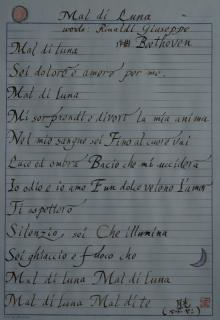 Mal di Luna
words: Rinaldi Giuseppe
Mal di luna
Beethoven
Sei dolore e amore per me.
Mal di luna
Mi sorprendi e divori la mia anima
Nel mio sangue sei Fino al cuore vai
Luce ed ombra Bacio che mi uccidera
Io odio e io amo E un dolce veleno l'amor
Ti aspettero
Silenzio, sei Che illumina
Sei ghiaccio e fuoco che
Mal di luna Mal di luna
Mal di luna Mal di te